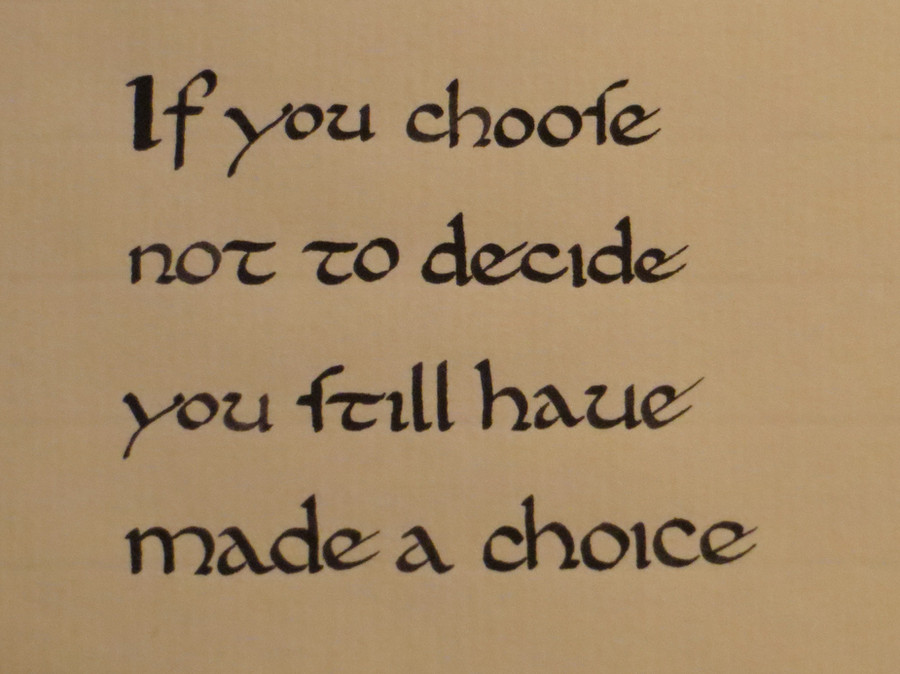 If you chooſe
not to decide
you ſtill haue
made a choice